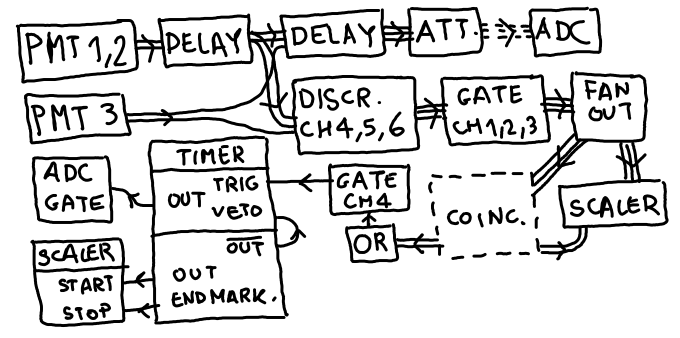 PMT 1,2
DELAY
DELAY
ATT.
ADC
PMT 3
DISCR.
CH4,5,6
GATE
CH1,2,3
FAN
OUT
ADC
GATE
TIMER
OUT
TRIG
VETO
GATE
CH4
COINC.
SCALER
OR
SCALER
START
STOP
OUT
OUT
END MARK.